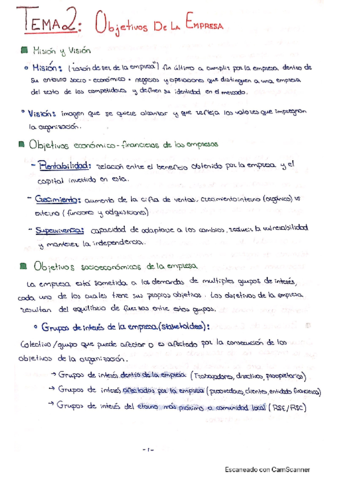 TEMA 2: Objetivos De La Empresa
Misión y Visión
• Misión: (razón de ser de la empresa) Fin último a cumplir por la empresa, dentro de
su entorno socio-económico + negocios y operaciones que distinguen a una empresa
del resto de los competidores y definen su identidad en el mercado.
• Visión: imagen que se quiere alcanzar y que refleja los valores que impregnan
la organización.
Objetivos económico-financieros de las empresas
- Rentabilidad: relación entre el beneficio obtenido por la empresa y el
capital invertido en esta.
- Crecimiento: aumento de la cifra de ventas. Crecimiento interno (orgánico) vs
externo (fusiones y adquisiciones)
- Supervivencia: capacidad de adaptarse a los cambios, reducir la vulnerabilidad
y mantener la independencia.
Objetivos socioeconómicos de la empresa
La empresa está sometida a las demandas de múltiples grupos de interés,
cada uno de los cuales tiene sus propios objetivos. Los objetivos de la empresa
resultan del equilibrio de fuerzas entre estos grupos.
• Grupos de interés de la empresa (stakeholders):
Colectivo/grupo que puede afectar o es afectado por la consecución de los
objetivos de la organización.
→ Grupos de interés dentro de la empresa (Trabajadores, directivos, propietarios)
→ Grupos de interés afectados por la empresa (proveedores, clientes, entidades financieras)
→ Grupos de interés del entorno más próximo o comunidad local (RSE/RSC)
-1-
Escaneado con CamScanner